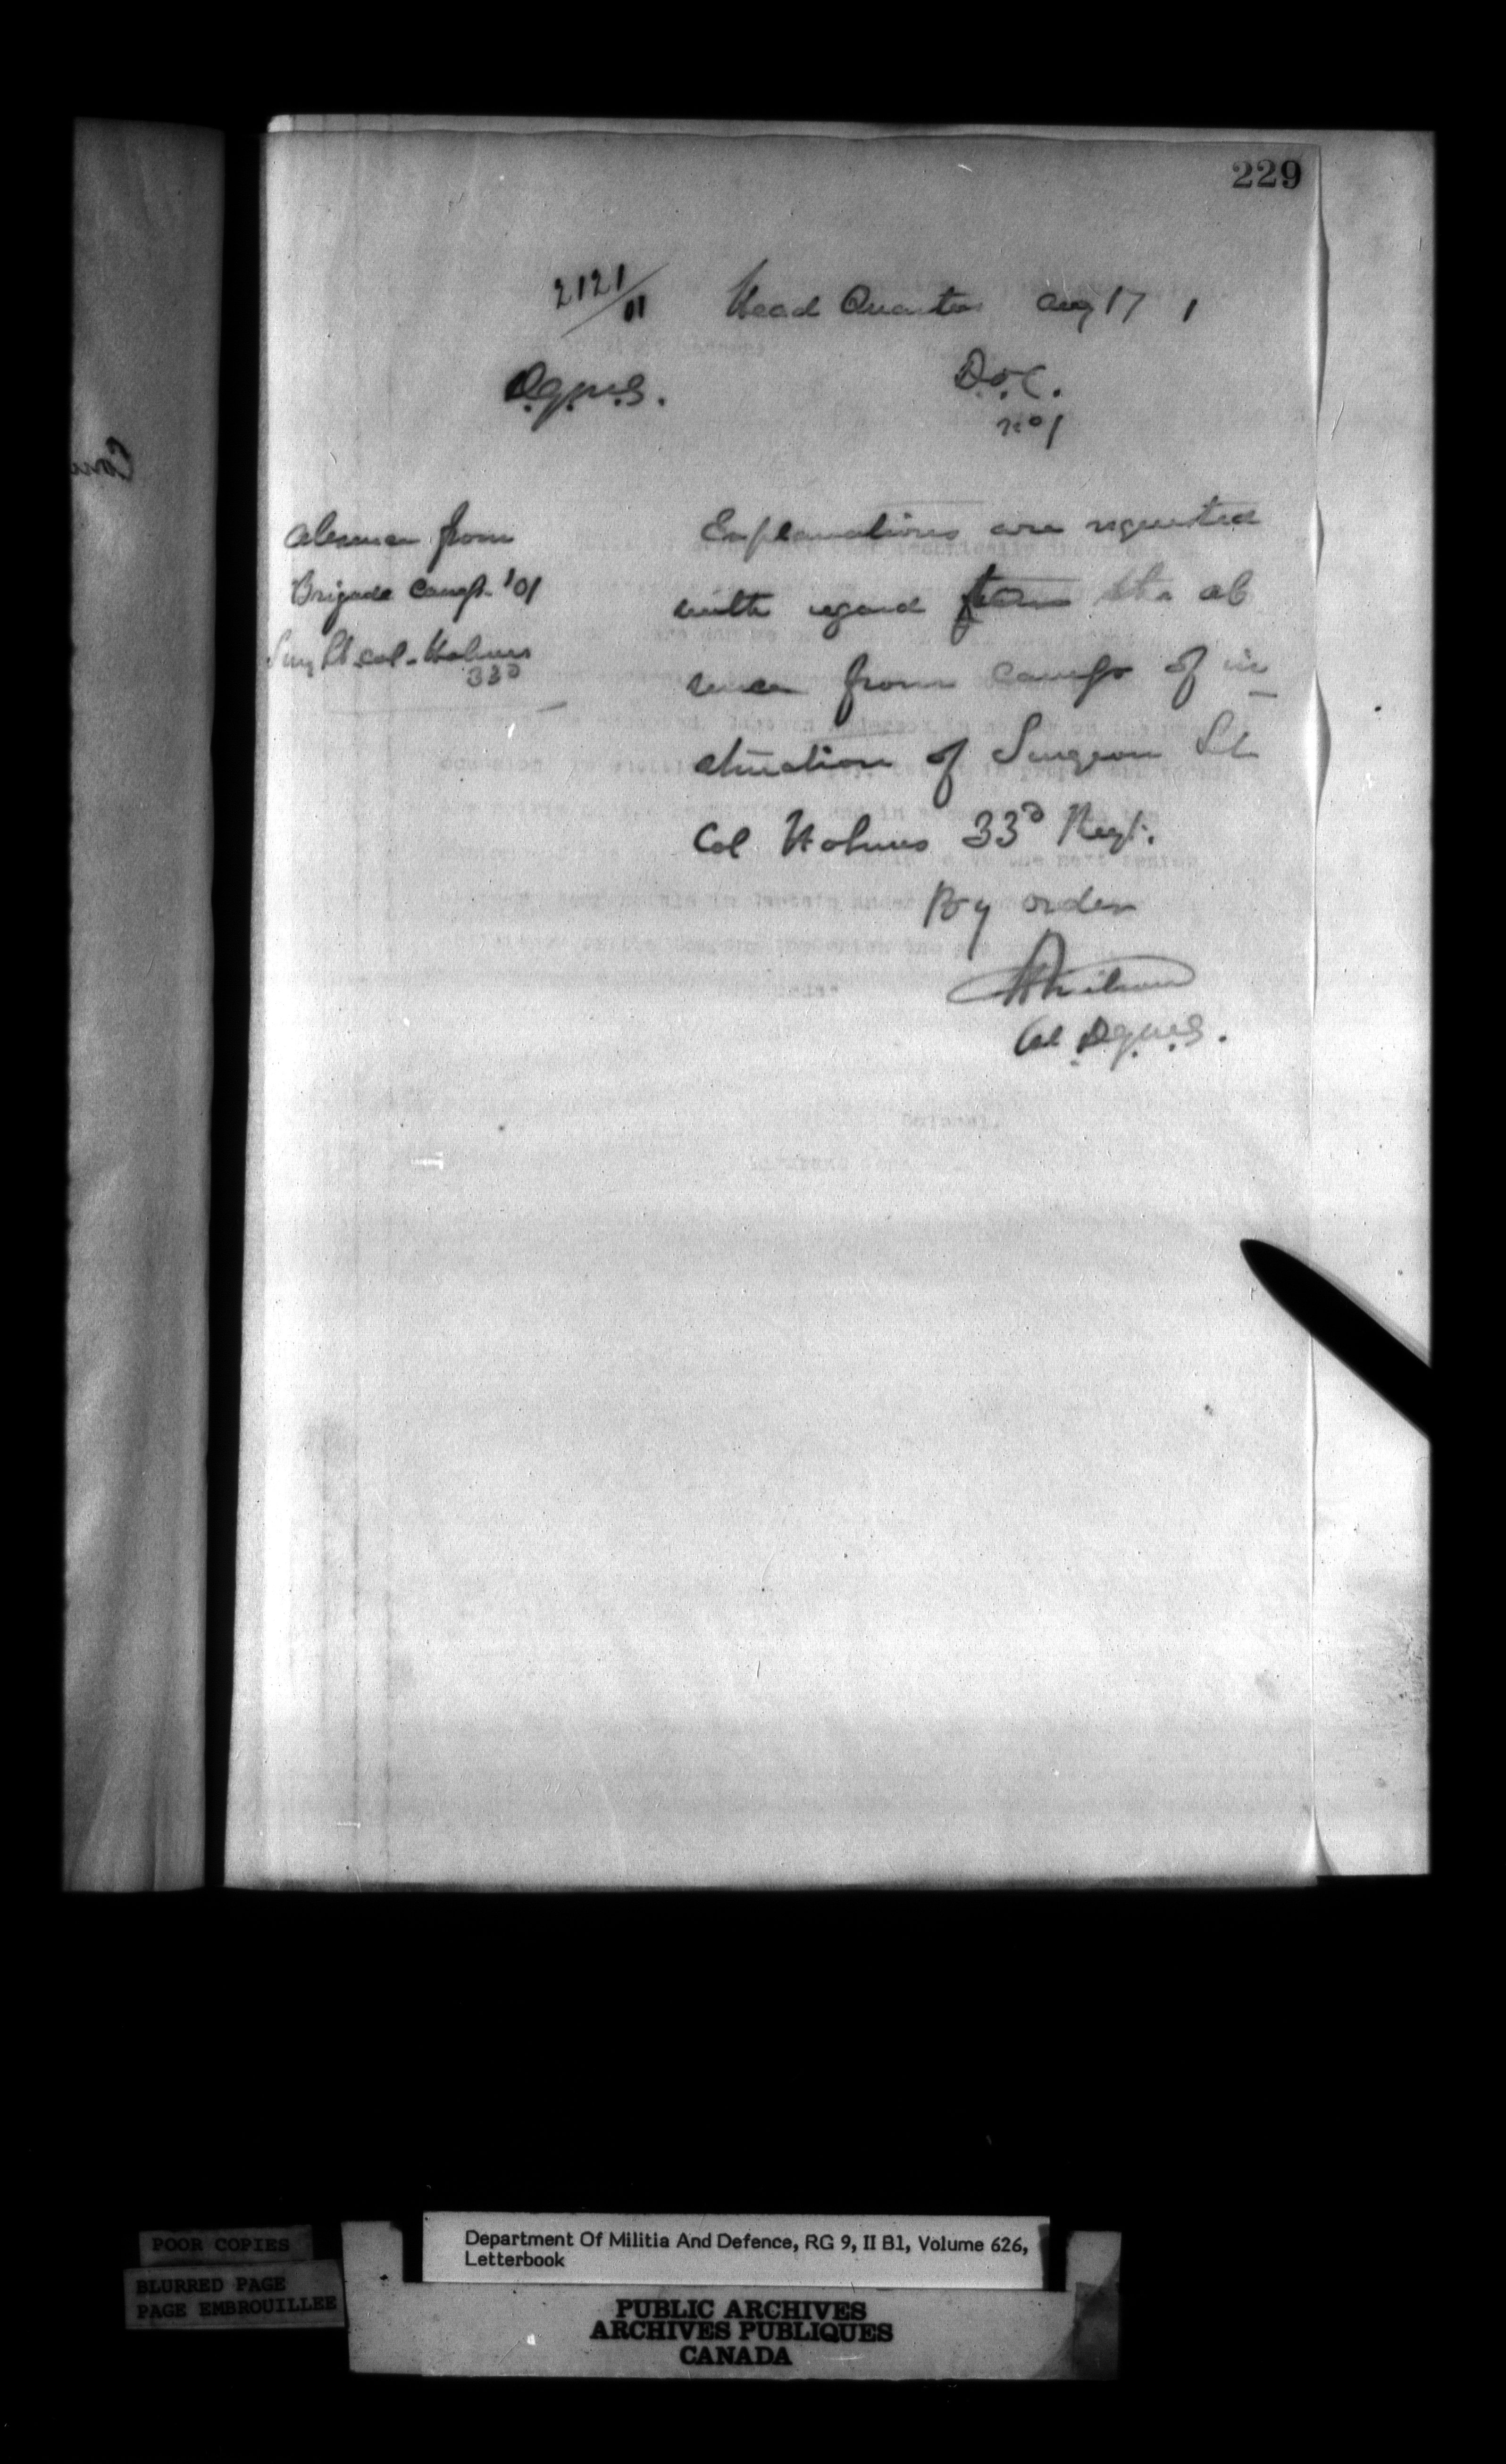 229
2121/11 Head Quarters Aug 17 1
D.G.M.S.
D.O.C.
No 1
Absence from
Brigade Camp. '01
Surg Lt. Col. Holmes
33D
Explanations are requested
with regard to the ab
sence from Camp of in
struction of Surgeon Lt
Col Holmes 33D Regt.
By order
Col D.G.M.S.
POOR COPIES
BLURRED PAGE
PAGE EMBROUILLEE
Department Of Militia And Defence, RG 9, II B1, Volume 626,
Letterbook
PUBLIC ARCHIVES
ARCHIVES PUBLIQUES
CANADA